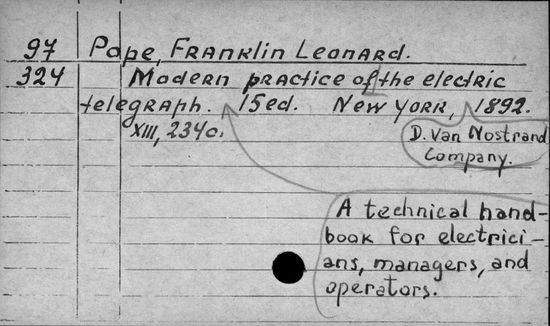 97 Pope, Franklin Leonard.
324 Modern practice of the electric
telegraph. 15ed. New York, 1892.
XIII, 234c.
D. Van Nostrand
Company.
A technical hand-
book for electrici-
ans, managers, and
operators.